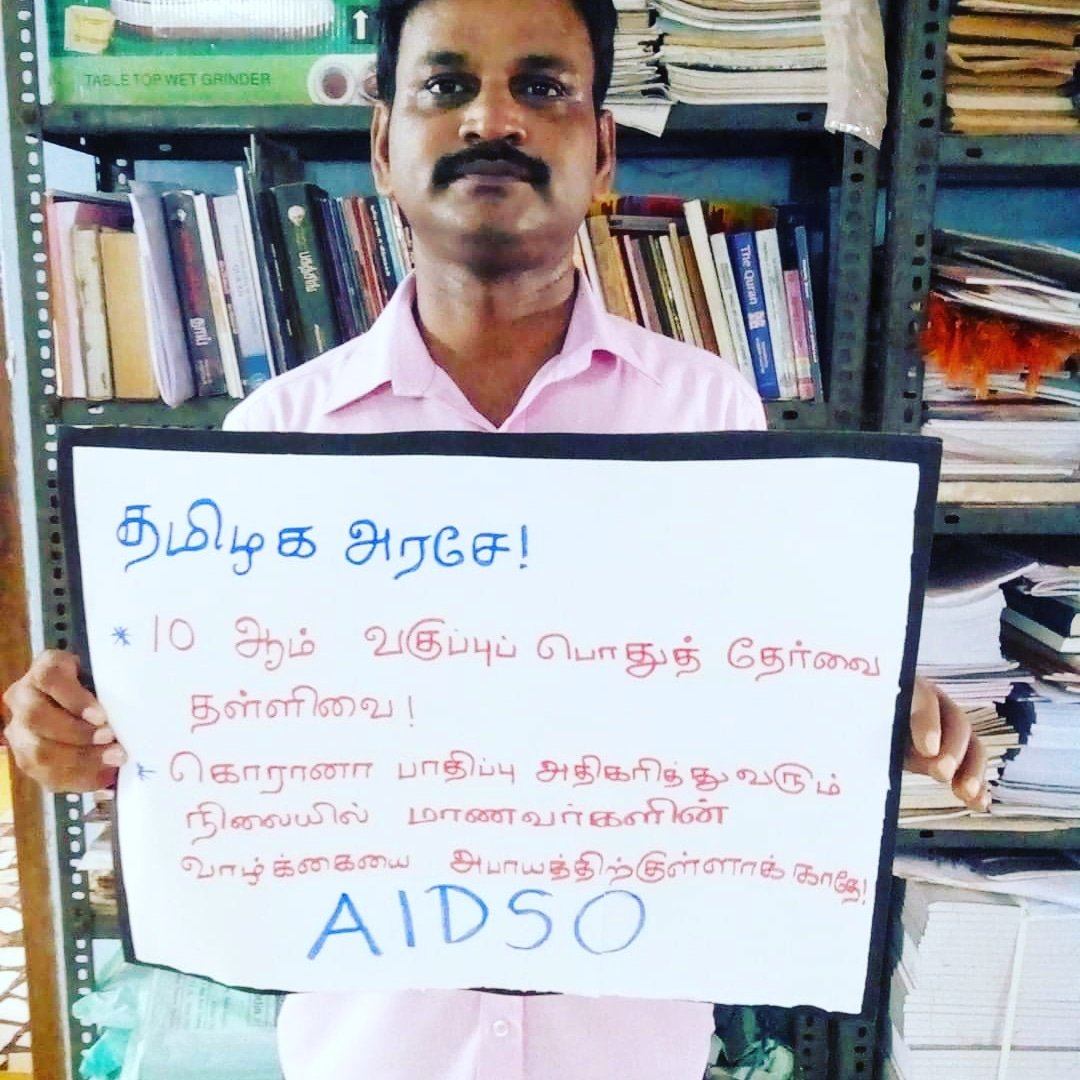 TABLE TOP WET GRINDER
The Quran
தமிழக அரசே!
* 10 ஆம் வகுப்புப் பொதுத் தேர்வை
தள்ளிவை!
* கொரானா பாதிப்பு அதிகரித்து வரும்
நிலையில் மாணவர்களின்
வாழ்க்கையை அபாயத்திற்குள்ளாக்காதே!
AIDSO